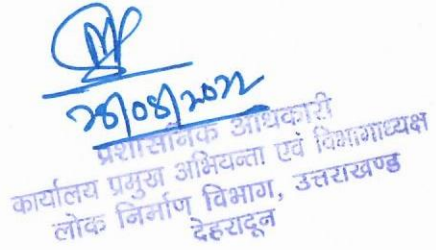 28/08/2022
प्रशासनिक अधिकारी
कार्यालय प्रमुख अभियन्ता एवं विभागाध्यक्ष
लोक निर्माण विभाग, उत्तराखण्ड
देहरादून